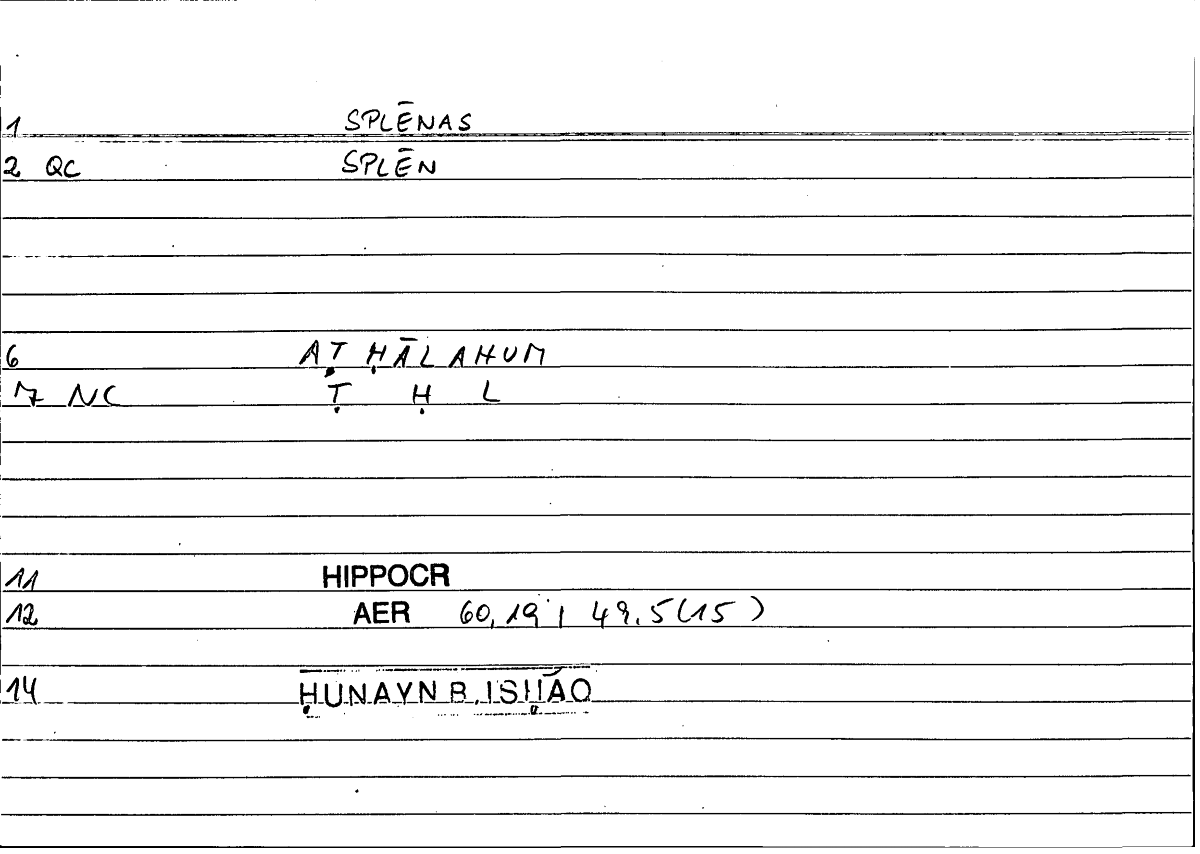 1 SPLĒNAS
2 QC SPLĒN
6 AṬ ḤĀLAHUM
7 NC Ṭ Ḥ L
11 HIPPOCR
12 AER 60,19; 49.5(15)
14 ḤUNAYN B. ISḤĀQ